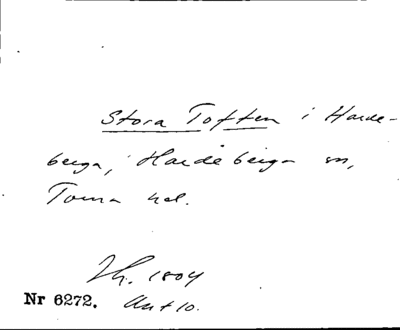 Stora Toften i Harde-
berga, Hardeberga sn,
Torna hd.
1804
Nr 6272. Akt 10.